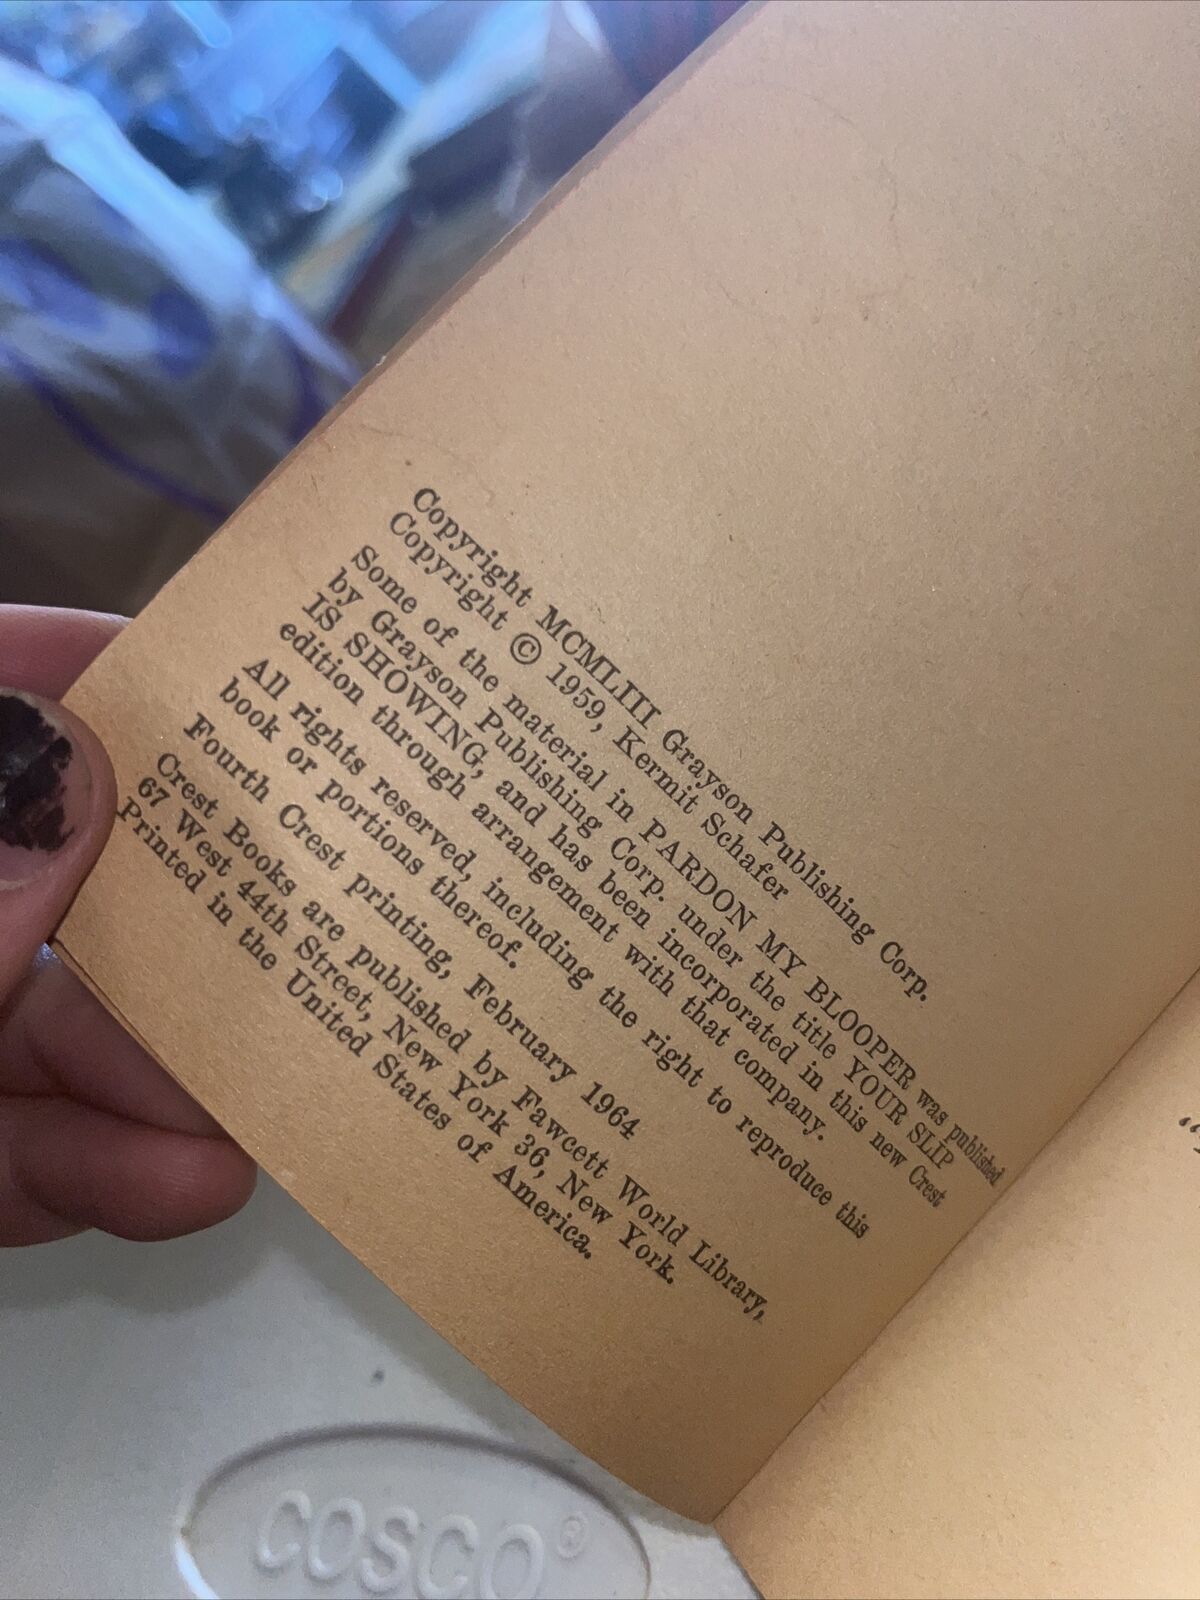 Copyright MCMLIII Grayson Publishing Corp.
Copyright © 1959, Kermit Schafer
Some of the material in PARDON MY BLOOPER was published
by Grayson Publishing Corp. under the title YOUR SLIP
IS SHOWING, and has been incorporated in this new Crest
edition through arrangement with that company.
All rights reserved, including the right to reproduce this
book or portions thereof.
Fourth Crest printing, February 1964
Crest Books are published by Fawcett World Library,
67 West 44th Street, New York 36, New York.
Printed in the United States of America.
COSCO®